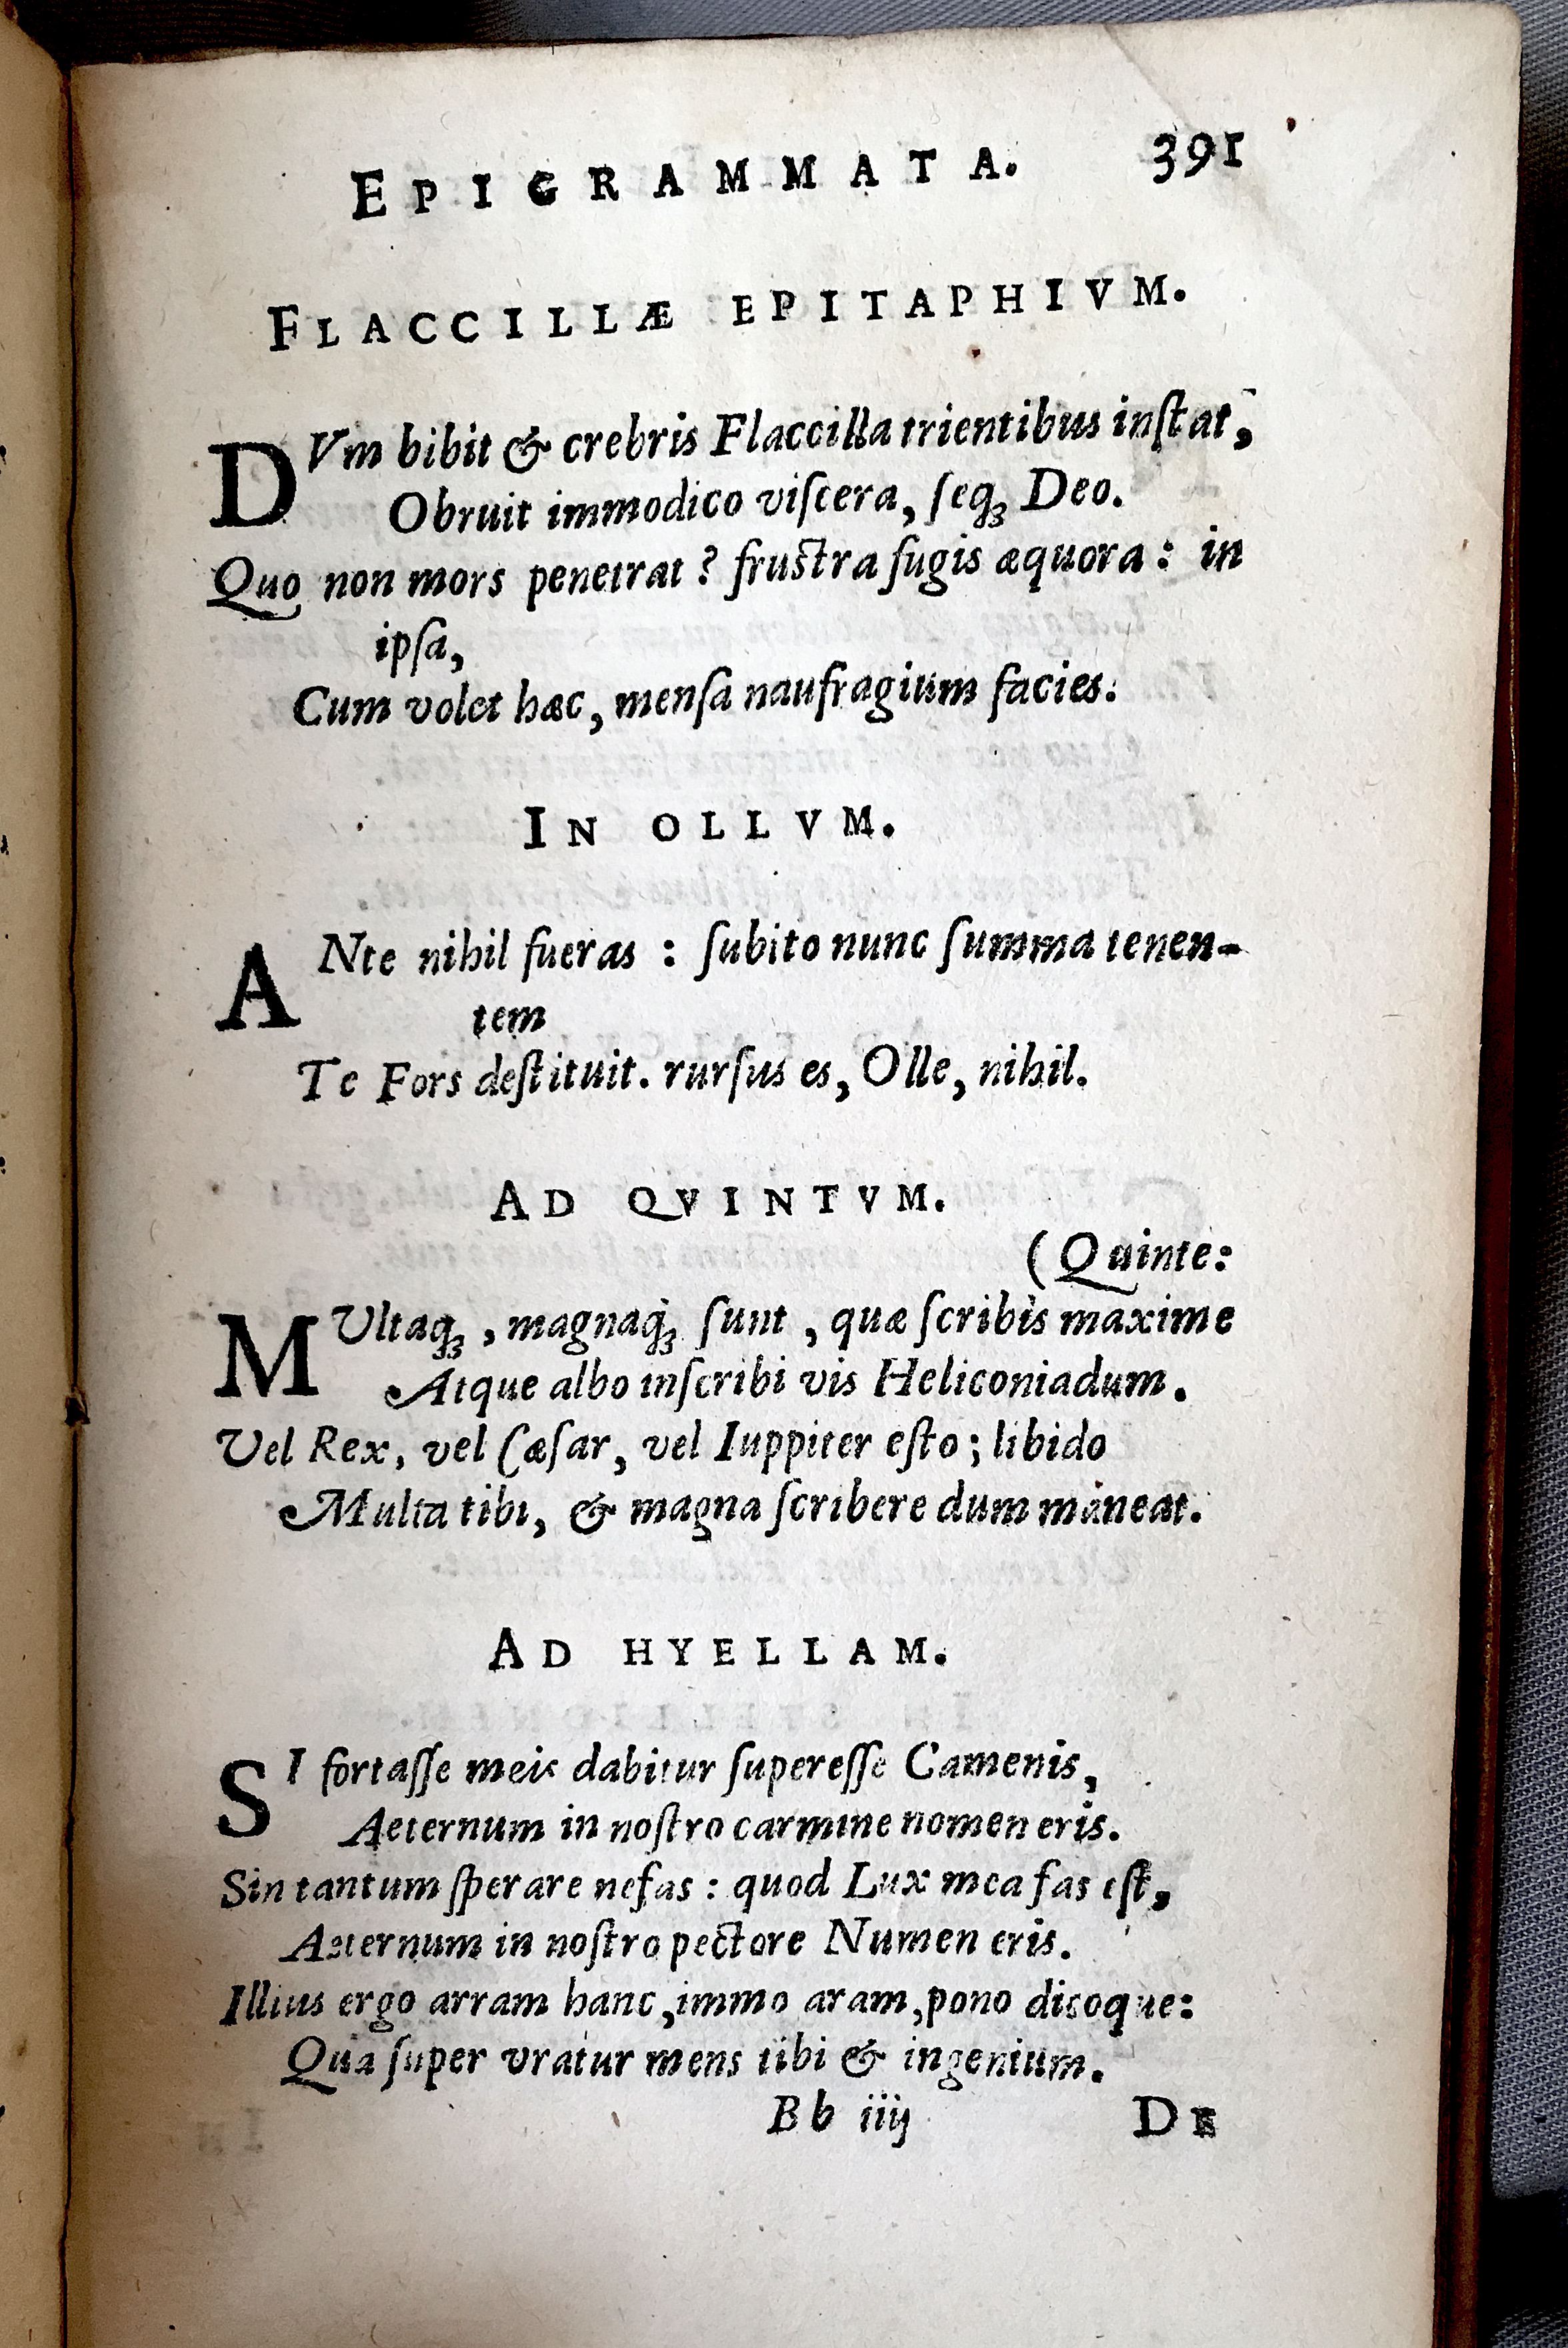 EPIGRAMMATA. 391
FLACCILLÆ EPITAPHIVM.
DVm bibit & crebris Flaccilla trientibus inſtat,
Obruit immodico viſcera, ſeqꝫ Deo.
Quo non mors penetrat? fruſtra fugis æquora: in
ipſa,
Cum volet hæc, menſa naufragium facies.
IN OLLVM.
ANte nihil fueras: ſubito nunc ſumma tenen-
tem
Te Fors deſtituit. rurſus es, Olle, nihil.
AD QVINTVM.
(Quinte:
MUltaqꝫ, magnaqꝫ ſunt, quæ ſcribis maxime
Atque albo inſcribi vis Heliconiadum.
Vel Rex, vel Cæſar, vel Iuppiter eſto; libido
Multa tibi, & magna ſcribere dum maneat.
AD HYELLAM.
SI fortaſſe meis dabitur ſupereſſe Camenis,
Aeternum in noſtro carmine nomen eris.
Sin tantum ſperare nefas: quod Lux mea fas eſt,
Aeternum in noſtro pectore Numen eris.
Illius ergo arram hanc, immo aram, pono dicoque:
Qua ſuper vratur mens tibi & ingenium.
Bb iiij DE